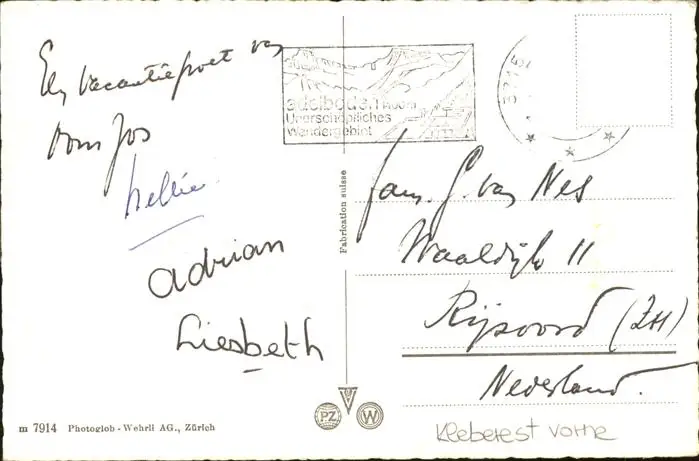 Een vacantiegroet van
oom Jos
Nellie
adrian
Liesbeth
adelboden 1400 m
Unerschöpfliches
Wandergebiet
3715
Fabrication suisse
Fam. G. van Nes
Waaldijk 11
Rijsoord (ZH)
Nederland.
PZ W
m 7914 Photoglob - Wehrli AG., Zürich
Kleberest vorne